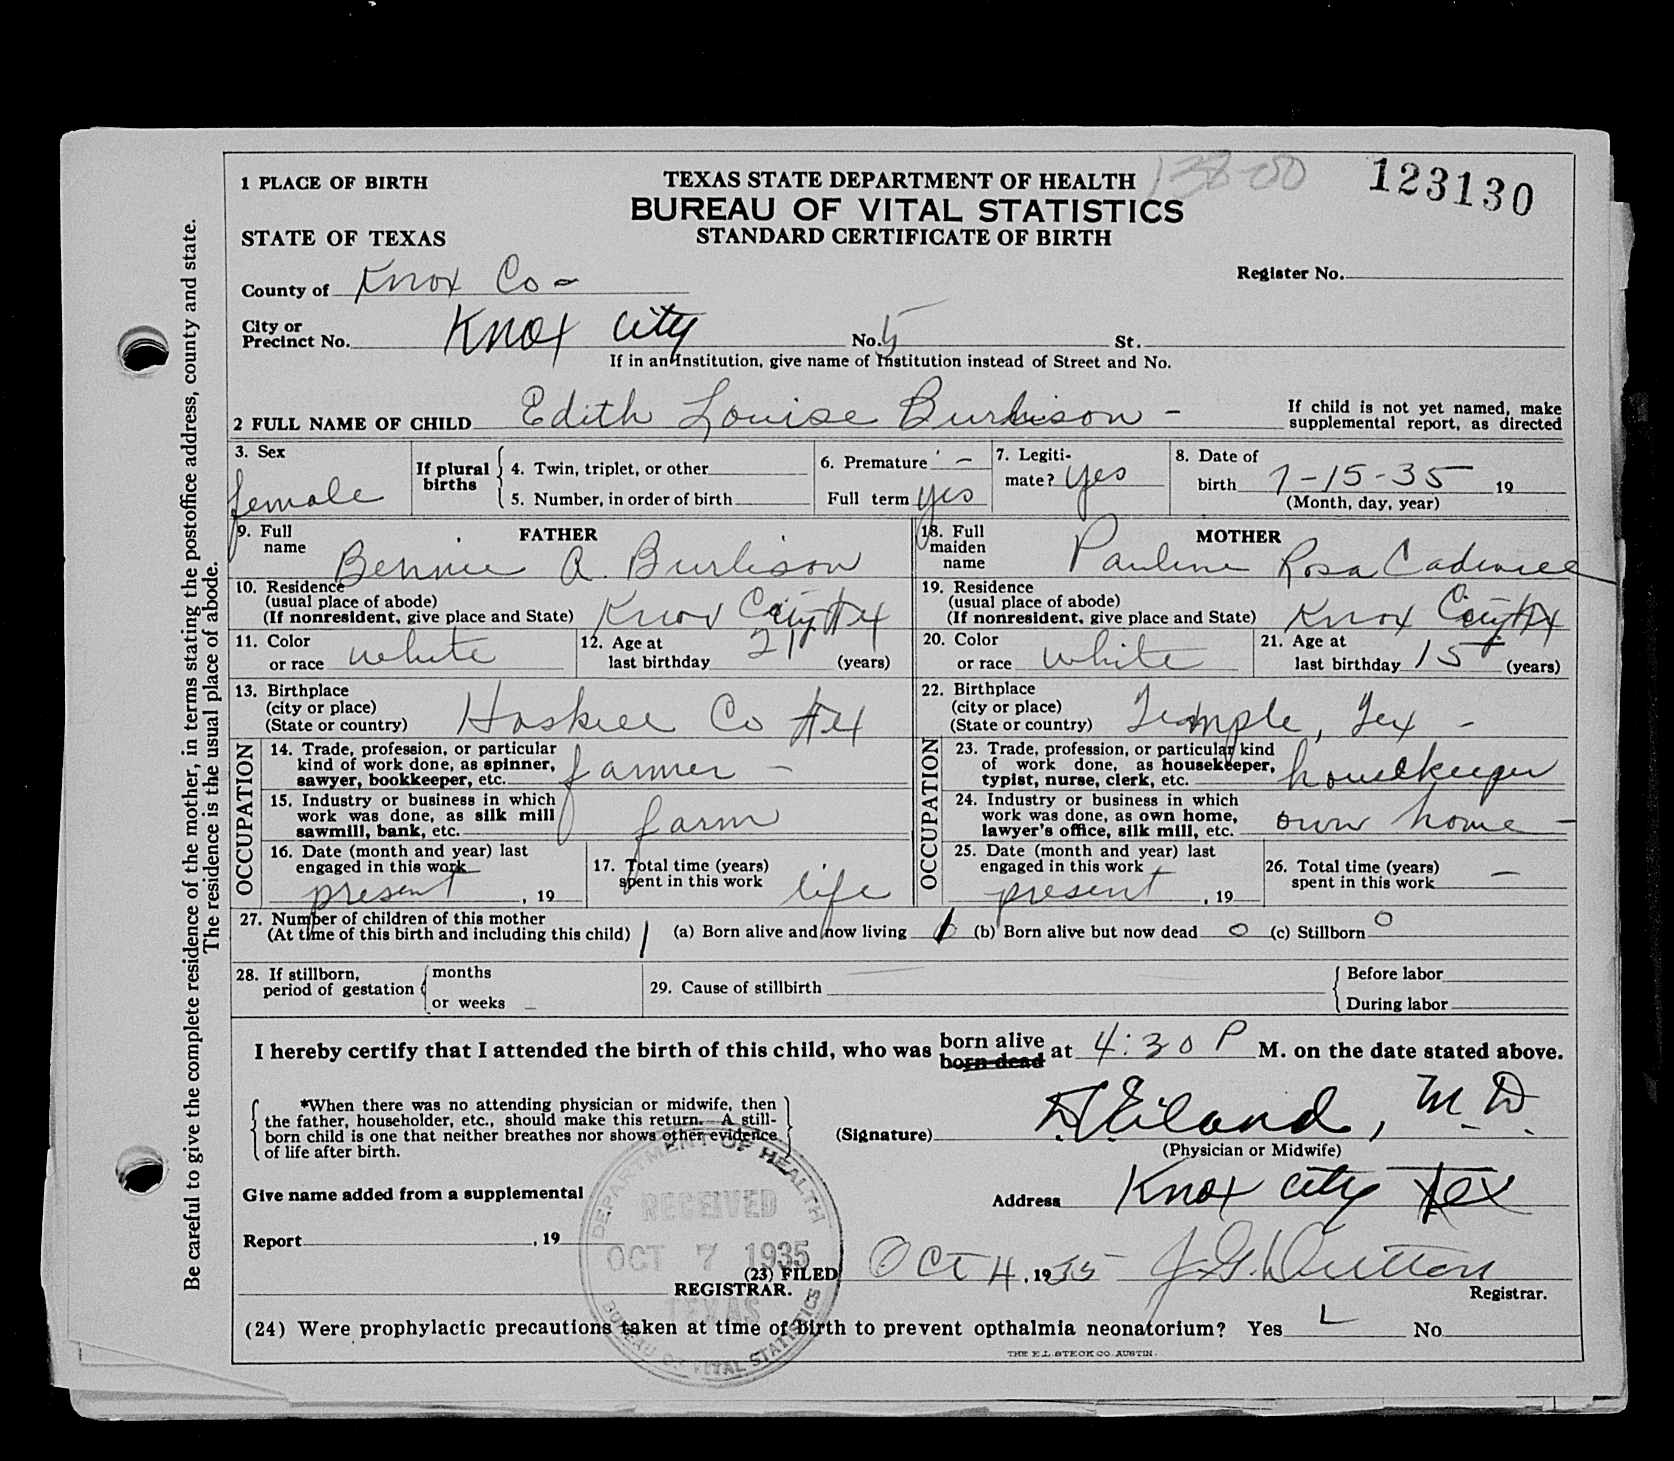 1 PLACE OF BIRTH
TEXAS STATE DEPARTMENT OF HEALTH 138-00 123130
BUREAU OF VITAL STATISTICS
STATE OF TEXAS STANDARD CERTIFICATE OF BIRTH
County of Knox Co - Register No.
City or
Precinct No. Knox City No. 5 St.
If in an Institution, give name of Institution instead of Street and No.
2 FULL NAME OF CHILD Edith Louise Burlison - If child is not yet named, make
supplemental report, as directed
3. Sex female
If plural births
4. Twin, triplet, or other
5. Number, in order of birth
6. Premature -
Full term yes
7. Legiti-
mate? yes
8. Date of
birth 7-15-35 19
(Month, day, year)
FATHER
9. Full
name Bennie A. Burlison
10. Residence
(usual place of abode)
(If nonresident, give place and State) Knox City Tex
11. Color
or race white
12. Age at
last birthday 21 (years)
13. Birthplace
(city or place)
(State or country) Haskell Co Tex
OCCUPATION
14. Trade, profession, or particular
kind of work done, as spinner,
sawyer, bookkeeper, etc. farmer -
15. Industry or business in which
work was done, as silk mill
sawmill, bank, etc. farm
16. Date (month and year) last
engaged in this work
present , 19
17. Total time (years)
spent in this work life
MOTHER
18. Full
maiden
name Pauline Rosa
19. Residence
(usual place of abode)
(If nonresident, give place and State) Knox City Tex
20. Color
or race white
21. Age at
last birthday 15 (years)
22. Birthplace
(city or place)
(State or country) Temple, Tex -
OCCUPATION
23. Trade, profession, or particular kind
of work done, as housekeeper,
typist, nurse, clerk, etc. housekeeper
24. Industry or business in which
work was done, as own home,
lawyer's office, silk mill, etc. own home -
25. Date (month and year) last
engaged in this work
present , 19
26. Total time (years)
spent in this work -
27. Number of children of this mother
(At time of this birth and including this child) 1 (a) Born alive and now living 1 (b) Born alive but now dead 0 (c) Stillborn 0
28. If stillborn,
period of gestation
months
or weeks -
29. Cause of stillbirth
Before labor
During labor
I hereby certify that I attended the birth of this child, who was born alive born dead at 4:30 P M. on the date stated above.
*When there was no attending physician or midwife, then
the father, householder, etc., should make this return. A still-
born child is one that neither breathes nor shows other evidence
of life after birth.
(Signature) Eiland, M.D.
(Physician or Midwife)
Give name added from a supplemental
Address Knox City Tex
Report , 19
REGISTRAR.
(23) FILED Oct 4, 1935 J. G. Registrar.
DEPARTMENT OF HEALTH
RECEIVED
OCT 7 1935
TEXAS
BUREAU OF VITAL STATISTICS
(24) Were prophylactic precautions taken at time of birth to prevent opthalmia neonatorium? Yes No
THE E.L. STECK CO. AUSTIN.
Be careful to give the complete residence of the mother, in terms stating the postoffice address, county and state.
The residence is the usual place of abode.